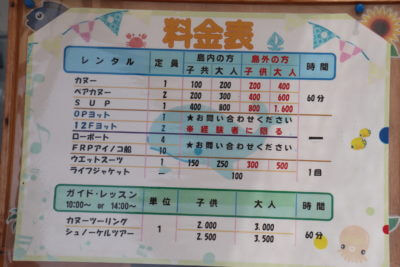 料金表
レンタル 定員 島内の方 島外の方 時間
子供 大人 子供 大人
カヌー 1 100 200 200 400 60分
ペアカヌー 2 200 300 400 600
SUP 1 400 800 800 1.600
OPヨット 1 ★お問い合わせください
12Fヨット 2 ※経験者に限る ー
ローボート 4 ★お問い合わせください
FRPアイノコ船 10
ウエットスーツ 1 150 250 300 500 1回
ライフジャケット ー 100
ガイド・レッスン 単位 子供 大人 時間
10:00～ or 14:00～
カヌーツーリング 1 2.000 3.000 60分
シュノーケルツアー 2.500 3.500